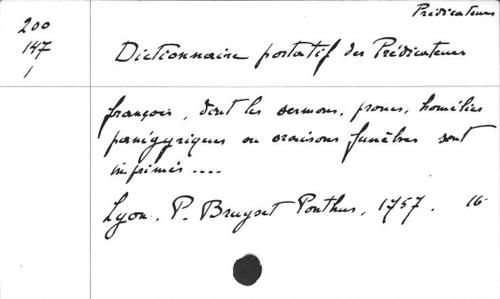 Prédicateurs
200
147
1
Dictionnaire portatif des Prédicateurs
françois, dont les sermons, prones, homélies
panégyriques ou oraisons funèbres sont
imprimés ....
Lyon, P. Bruyset Ponthus, 1757. 16